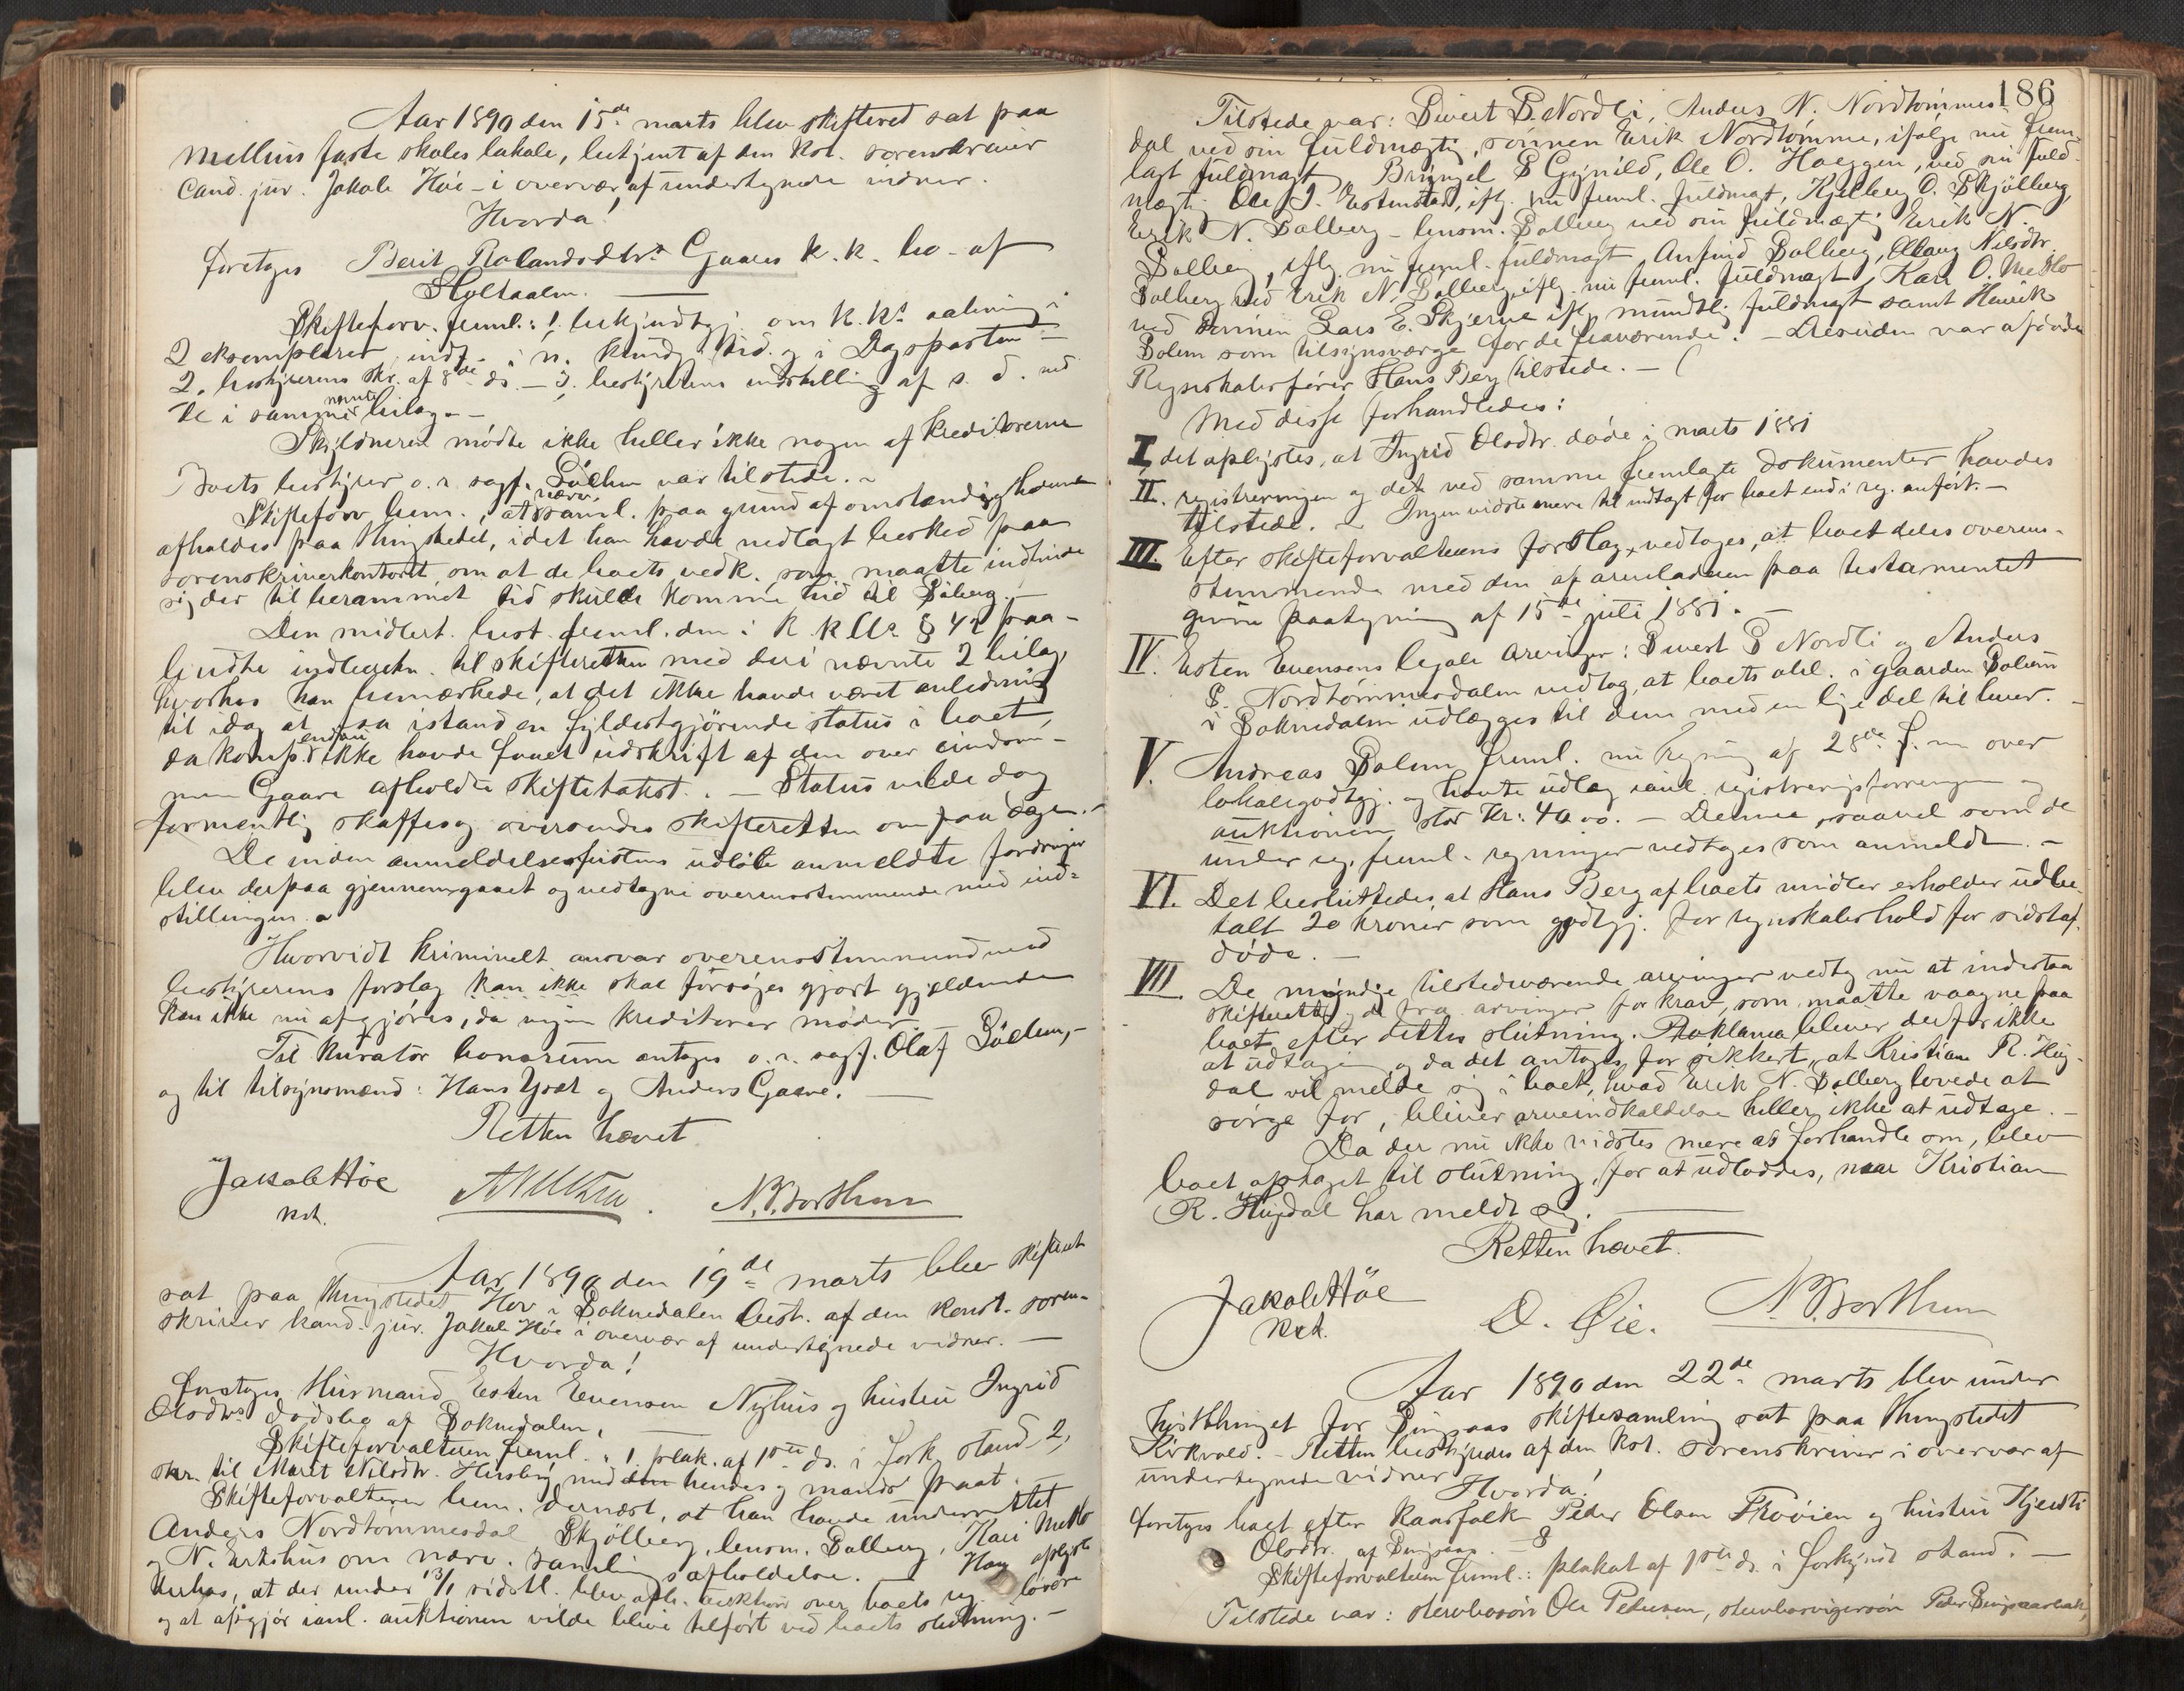 Aar 1890 den 15de marts blev skifteret sat paa
Mellius faste skoles lokale, betjent af den kst. sorenskriver
Cand. jur. Jakob Höe - i overvær af undertegnede vidner.
Hvorda!
foretoges Berit Rolandsdtr. Gaares k. k. bo - af
Holtaalen.
Skifteforv. freml.: 1. bekjendtgj. om k.ks aabning i
2 eksemplarer indt. i n. kundg. tid. og i Dagsposten -
2. bestyrerens skr. af 8de ds. - 3. bestyrerens indstilling af s. d. med
de i samme nævnte bilag. -
Skyldneren mödte ikke heller ikke nogen af kreditorerne
Boets bestyrer o. r. sagf. var tilstede. -
Skifteforv. bem., at nærv. saml. paa grund af omstændighederne
afholdes paa thingstedet, idet han havde nedlagt besked paa
sorenskriverkontoret, om at de boets vedk. som maatte indfinde
sig der til berammet tid skulde komme hid til Soberg. -
Den midlert. best. freml. den i K. kl.s § 42 paa-
budte indberetn. til skifteretten med deri nævnte 2 bilag,
hvorhos han bemærkede, at det ikke havde været anledning
til idag at faa istand en fyldestgjörende status i boet,
da komp. endnu ikke havde faaet udskrift af den over eiendom-
men Gaare afholdte skiftetakst. - Status vilde dog
formentlig skaffes og oversendes skifteretten om faa dage. -
De inden anmeldelsesfristens udlöb anmeldte fordringer
blev derpaa gjennemgaaet og vedtagne overensstemmende med ind-
stillingen. -
Hvorvidt kriminelt ansvar overensstemmende med
bestyrerens forslag kan ikke skal forsöges gjort gjeldende
kan ikke nu afgjöres, da ingen kreditorer möder. -
Til kurator bonorum antages o. r. sagf. Olaf
og til tilsynsmænd: Hans og Anders Gaare. -
Retten hævet
Jakob Höe
kst.
N. Borthen
Aar 1890 den 19de marts blev skifteret
sat paa thingstedet Hov i Soknedalen best. af den konst. soren-
skriver kand. jur. Jakob Höe i overvær af undertegnede vidner. -
Hvorda!
foretoges Husmand Esten Evensen Nyhus og hustru Ingrid
Olsdtrs dödsbo af Soknedalen,
Skifteforvalteren freml. 1. plak. af 1ste ds. i fork. stand, 2,
skr. til Marit Nilsdtr. med den hendes og mands paat. -
Skifteforvalteren bem. dernæst, at han havde underrettet
Anders Nordtömmesdal Skjölberg, lensm. Solberg, Kari
og N. om nærv. samlings afholdelse. - Han oplyste
derhos, at der under 13/1 sidstl. blev afh. auktion over boets reg. lösöre
og at opgjör ianl. auktionen vilde blive tilfört ved boets slutning. -
186
Tilstede var: Sivert S. Nordli, Anders N. Nordtömmes-
dal ved sin fuldmægtig, sönnen Erik Nordtömme, ifölge nu frem-
lagt fuldmagt, Bryngel S Gynild, Ole O. Haeggen, ved sin fuld-
mægtig Ole J. Estenstad, iflg. nu freml. fuldmagt, Kjelberg O. Skjölberg
Erik N. Solberg - lensm. Solberg ved sin fuldmægtig Erik N.
Solberg, iflg. nu freml. fuldmagt, Anfind Solberg, Nilsdtr.
Solberg ved Erik N. Solberg, iflg. nu freml. fuldmagt, Kari O.
ved sönnen Lars E. Skjerve iflg. mundtlig fuldmagt samt Henrik
Solem som tilsynsværge for de fraværende. - Desuden var afdödes
Regnskabsförer Hans Berg tilstede. -
Med disse forhandledes:
I, det oplystes, at Ingrid Olsdtr. döde i marts 1881
II. registreringen og det ved samme fremlagte dokumenter havdes
tilstede. - Ingen vidste mere til indtægt for boet end i reg. anfört. -
III. Efter skifteforvalterens forslag vedtoges, at boet deles overens-
stemmende med den af arveladeren paa testamentet
givne paategning af 15de juli 1881. -
IV. Esten Evensens legale arvinger: Sivert S Nordli og Anders
S. Nordtömmesdalen vedtog, at boets obl. i gaarden Solem
i Soknedalen udlægges til dem med en lige del til hver. -
V. Andreas Solem freml. nu regning af 28de f. m over
lokalegodtgj. og havte udlæg ianl. registreringsforretningen og
auktionen stor Kr: 40.00. - Denne, saavel som de
under reg. freml. regninger vedtoges som anmeldt. -
VI. Det besluttedes, at Hans Berg af boets midler erholder udbe-
talt 20 kroner som godtgj. for regnskabshold for sidst af-
döde. -
VII De myndige tilstedeværende arvinger vedtog nu at indestaa
skifteretten og de fra. arvinger for krav, som maatte vaagne paa
boet efter dettes slutning. Proklama bliver derfor ikke
at udtage og da det antages for sikkert, at Kristian R. Hug-
dal vil melde sig i boet, hvad Erik N. Solberg lovede at
sörge for, bliver arveindkaldelse heller ikke at udtage. -
Da der nu ikke vidstes mere at forhandle om, blev
boet optaget til slutning, for at udloddes, naar Kristian
R. Hugdal har meldt sig.
Retten hævet.
Jakob Höe
kst.
O. Øie.
N. Borthen
Aar 1890 den 22de marts blev under
hösttinget for Singsaas skiftesamling sat paa thingstedet
Kirkvold. - Retten bestyredes af den kst. sorenskriver i overvær af
undertegnede vidner
Hvorda!
foretoges boet efter kaarfolk Peder Olsen og hustru Kjersti
Olsdtr. af Singsaas. -
Skifteforvalteren freml.: plakat af 1ste ds. i forkyndt stand. -
Tilstede var: stervbosön Ole Pedersen, stervbosvigersön Peder